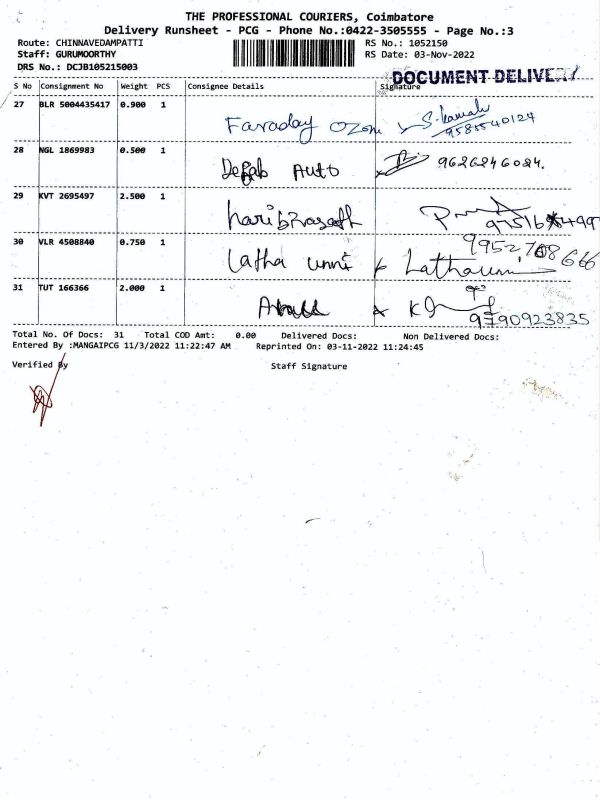 THE PROFESSIONAL COURIERS, Coimbatore
Delivery Runsheet - PCG - Phone No.:0422-3505555 - Page No.:3
Route: CHINNAVEDAMPATTI RS No.: 1052150
Staff: GURUMOORTHY RS Date: 03-Nov-2022
DRS No.: DCJB105215003
DOCUMENT DELIVE
S No Consignment No Weight PCS Consignee Details Signature
27 BLR 5004435417 0.900 1
Faraday Ozone S. 9585540124
28 NGL 1869983 0.500 1
Auto 9626246024.
29 KVT 2695497 2.500 1
hariprasath
30 VLR 4508840 0.750 1 9952,708666
Latha unni Lathaunni
31 TUT 166366 2.000 1
9790923835
Total No. Of Docs: 31 Total COD Amt: 0.00 Delivered Docs: Non Delivered Docs:
Entered By :MANGAIPCG 11/3/2022 11:22:47 AM Reprinted On: 03-11-2022 11:24:45
Verified By Staff Signature